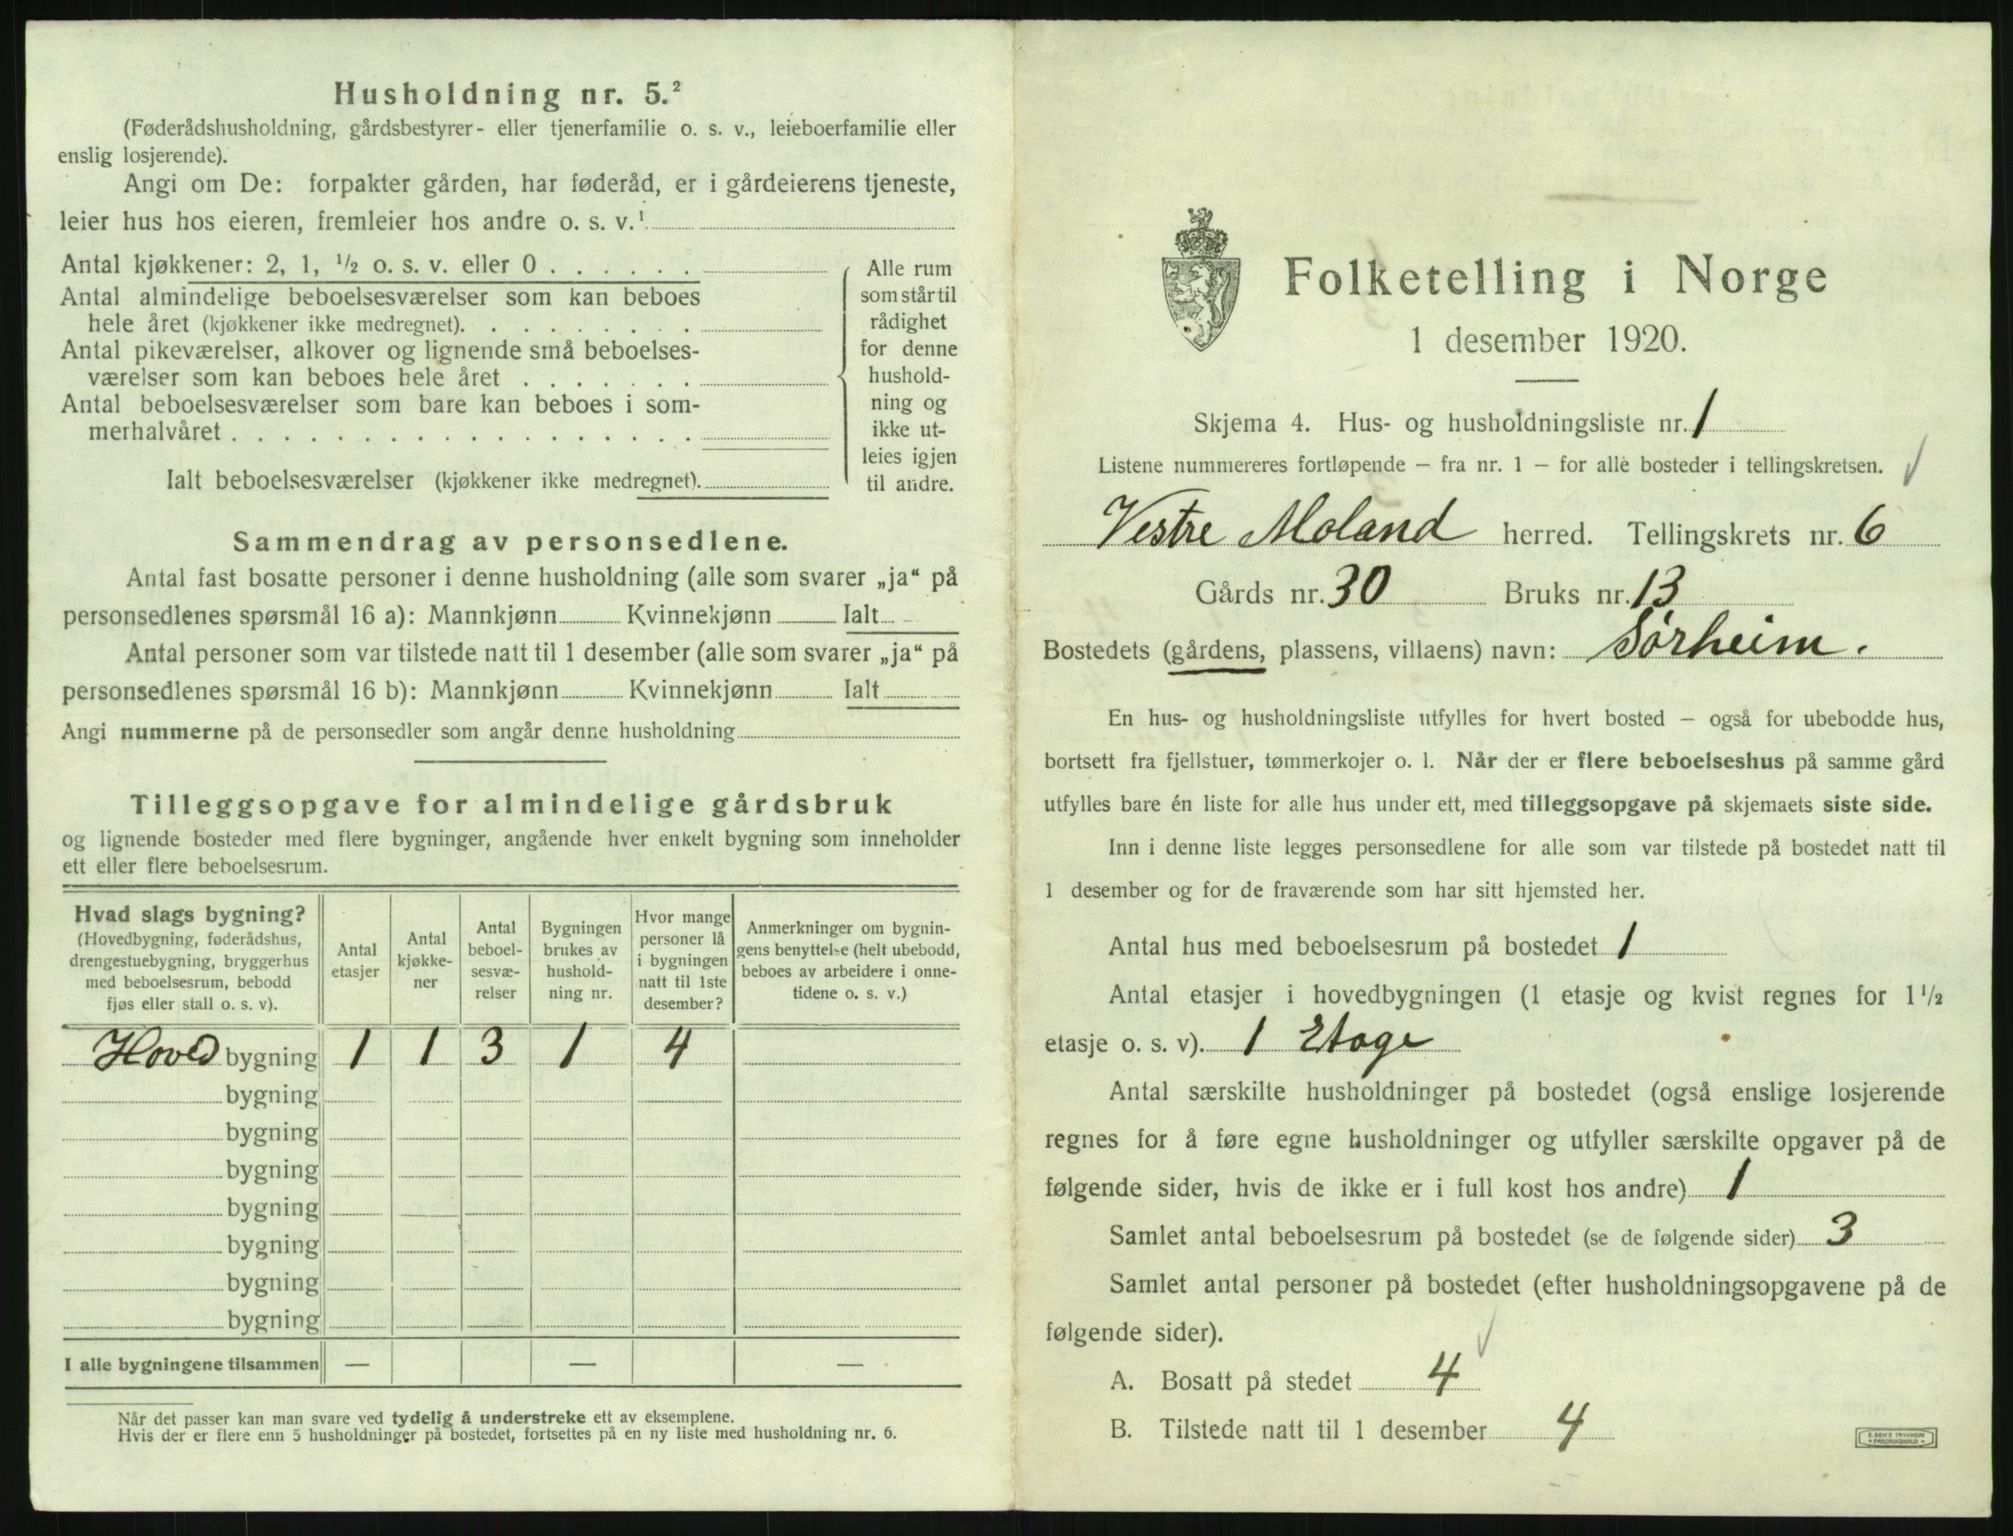 Husholdning nr. 5.²
(Føderådshusholdning, gårdsbestyrer- eller tjenerfamilie o. s. v., leieboerfamilie eller
enslig losjerende).
Angi om De: forpakter gården, har føderåd, er i gårdeierens tjeneste,
leier hus hos eieren, fremleier hos andre o. s. v.¹
Antal kjøkkener: 2, 1, ½ o. s. v. eller 0 . . . . . .
Antal almindelige beboelsesværelser som kan beboes
hele året (kjøkkener ikke medregnet). . . . . . . . .
Antal pikeværelser, alkover og lignende små beboelses-
værelser som kan beboes hele året . . . . . . .
Antal beboelsesværelser som bare kan beboes i som-
merhalvåret . . . . . . . . . . . . . . . . . .
Ialt beboelsesværelser (kjøkkener ikke medregnet).
Alle rum
som står til
rådighet
for denne
hushold-
ning og
ikke ut-
leies igjen
til andre.
Sammendrag av personsedlene.
Antal fast bosatte personer i denne husholdning (alle som svarer „ja“ på
personsedlenes spørsmål 16 a): Mannkjønn Kvinnekjønn Ialt
Antal personer som var tilstede natt til 1 desember (alle som svarer „ja“ på
personsedlenes spørsmål 16 b): Mannkjønn Kvinnekjønn Ialt
Angi nummerne på de personsedler som angår denne husholdning
Tilleggsopgave for almindelige gårdsbruk
og lignende bosteder med flere bygninger, angående hver enkelt bygning som inneholder
ett eller flere beboelsesrum.
Hvad slags bygning?
(Hovedbygning, føderådshus,
drengestuebygning, bryggerhus
med beboelsesrum, bebodd
fjøs eller stall o. s. v).
Antal
etasjer
Antal
kjøkke-
ner
Antal
beboel-
sesvæ-
relser
Bygningen
brukes av
hushold-
ning nr.
Hvor mange
personer lå
i bygningen
natt til 1ste
desember?
Anmerkninger om bygnin-
gens benyttelse (helt ubebodd,
beboes av arbeidere i onne-
tidene o. s. v.)
Hoved bygning 1 1 3 1 4
bygning
bygning
bygning
bygning
bygning
bygning
bygning
I alle bygningene tilsammen — — —
Når det passer kan man svare ved tydelig å understreke ett av eksemplene.
Hvis der er flere enn 5 husholdninger på bostedet, fortsettes på en ny liste med husholdning nr. 6.
Folketelling i Norge
1 desember 1920.
Skjema 4. Hus- og husholdningsliste nr. 1
Listene nummereres fortløpende – fra nr. 1 – for alle bosteder i tellingskretsen.
Vestre Moland herred. Tellingskrets nr. 6
Gårds nr. 30 Bruks nr. 13
Bostedets (gårdens, plassens, villaens) navn: Sørheim.
En hus- og husholdningsliste utfylles for hvert bosted – også for ubebodde hus,
bortsett fra fjellstuer, tømmerkojer o. l. Når der er flere beboelseshus på samme gård
utfylles bare én liste for alle hus under ett, med tilleggsopgave på skjemaets siste side.
Inn i denne liste legges personsedlene for alle som var tilstede på bostedet natt til
1 desember og for de fraværende som har sitt hjemsted her.
Antal hus med beboelsesrum på bostedet 1
Antal etasjer i hovedbygningen (1 etasje og kvist regnes for 1½
etasje o. s. v). 1 Etage
Antal særskilte husholdninger på bostedet (også enslige losjerende
regnes for å føre egne husholdninger og utfyller særskilte opgaver på de
følgende sider, hvis de ikke er i full kost hos andre) 1
Samlet antal beboelsesrum på bostedet (se de følgende sider) 3
Samlet antal personer på bostedet (efter husholdningsopgavene på de
følgende sider).
A. Bosatt på stedet 4
B. Tilstede natt til 1 desember 4